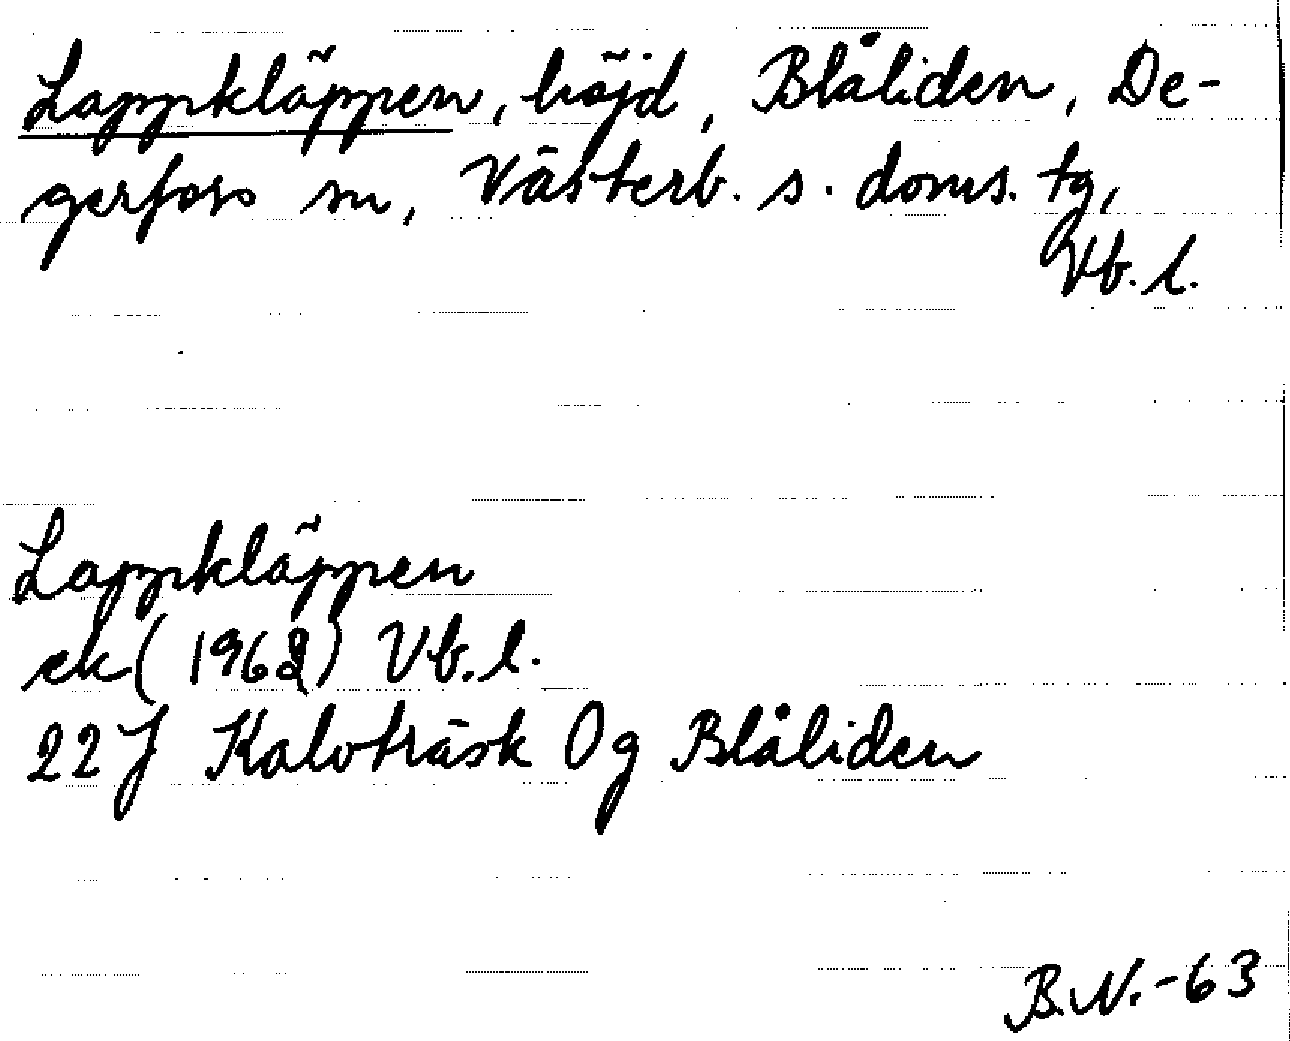 Lappkläppen, höjd, Blåliden, De-
gerfors sn, Västerb. s. doms. tg,
Vb. l.
Lappkläppen
ek (1962) Vb. l.
22J Kalvträsk 0g Blåliden
B.N.-63